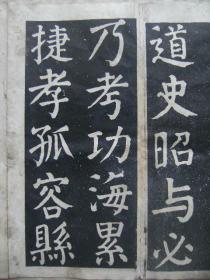 道史昭与必
乃考功海累
捷孝孤容縣